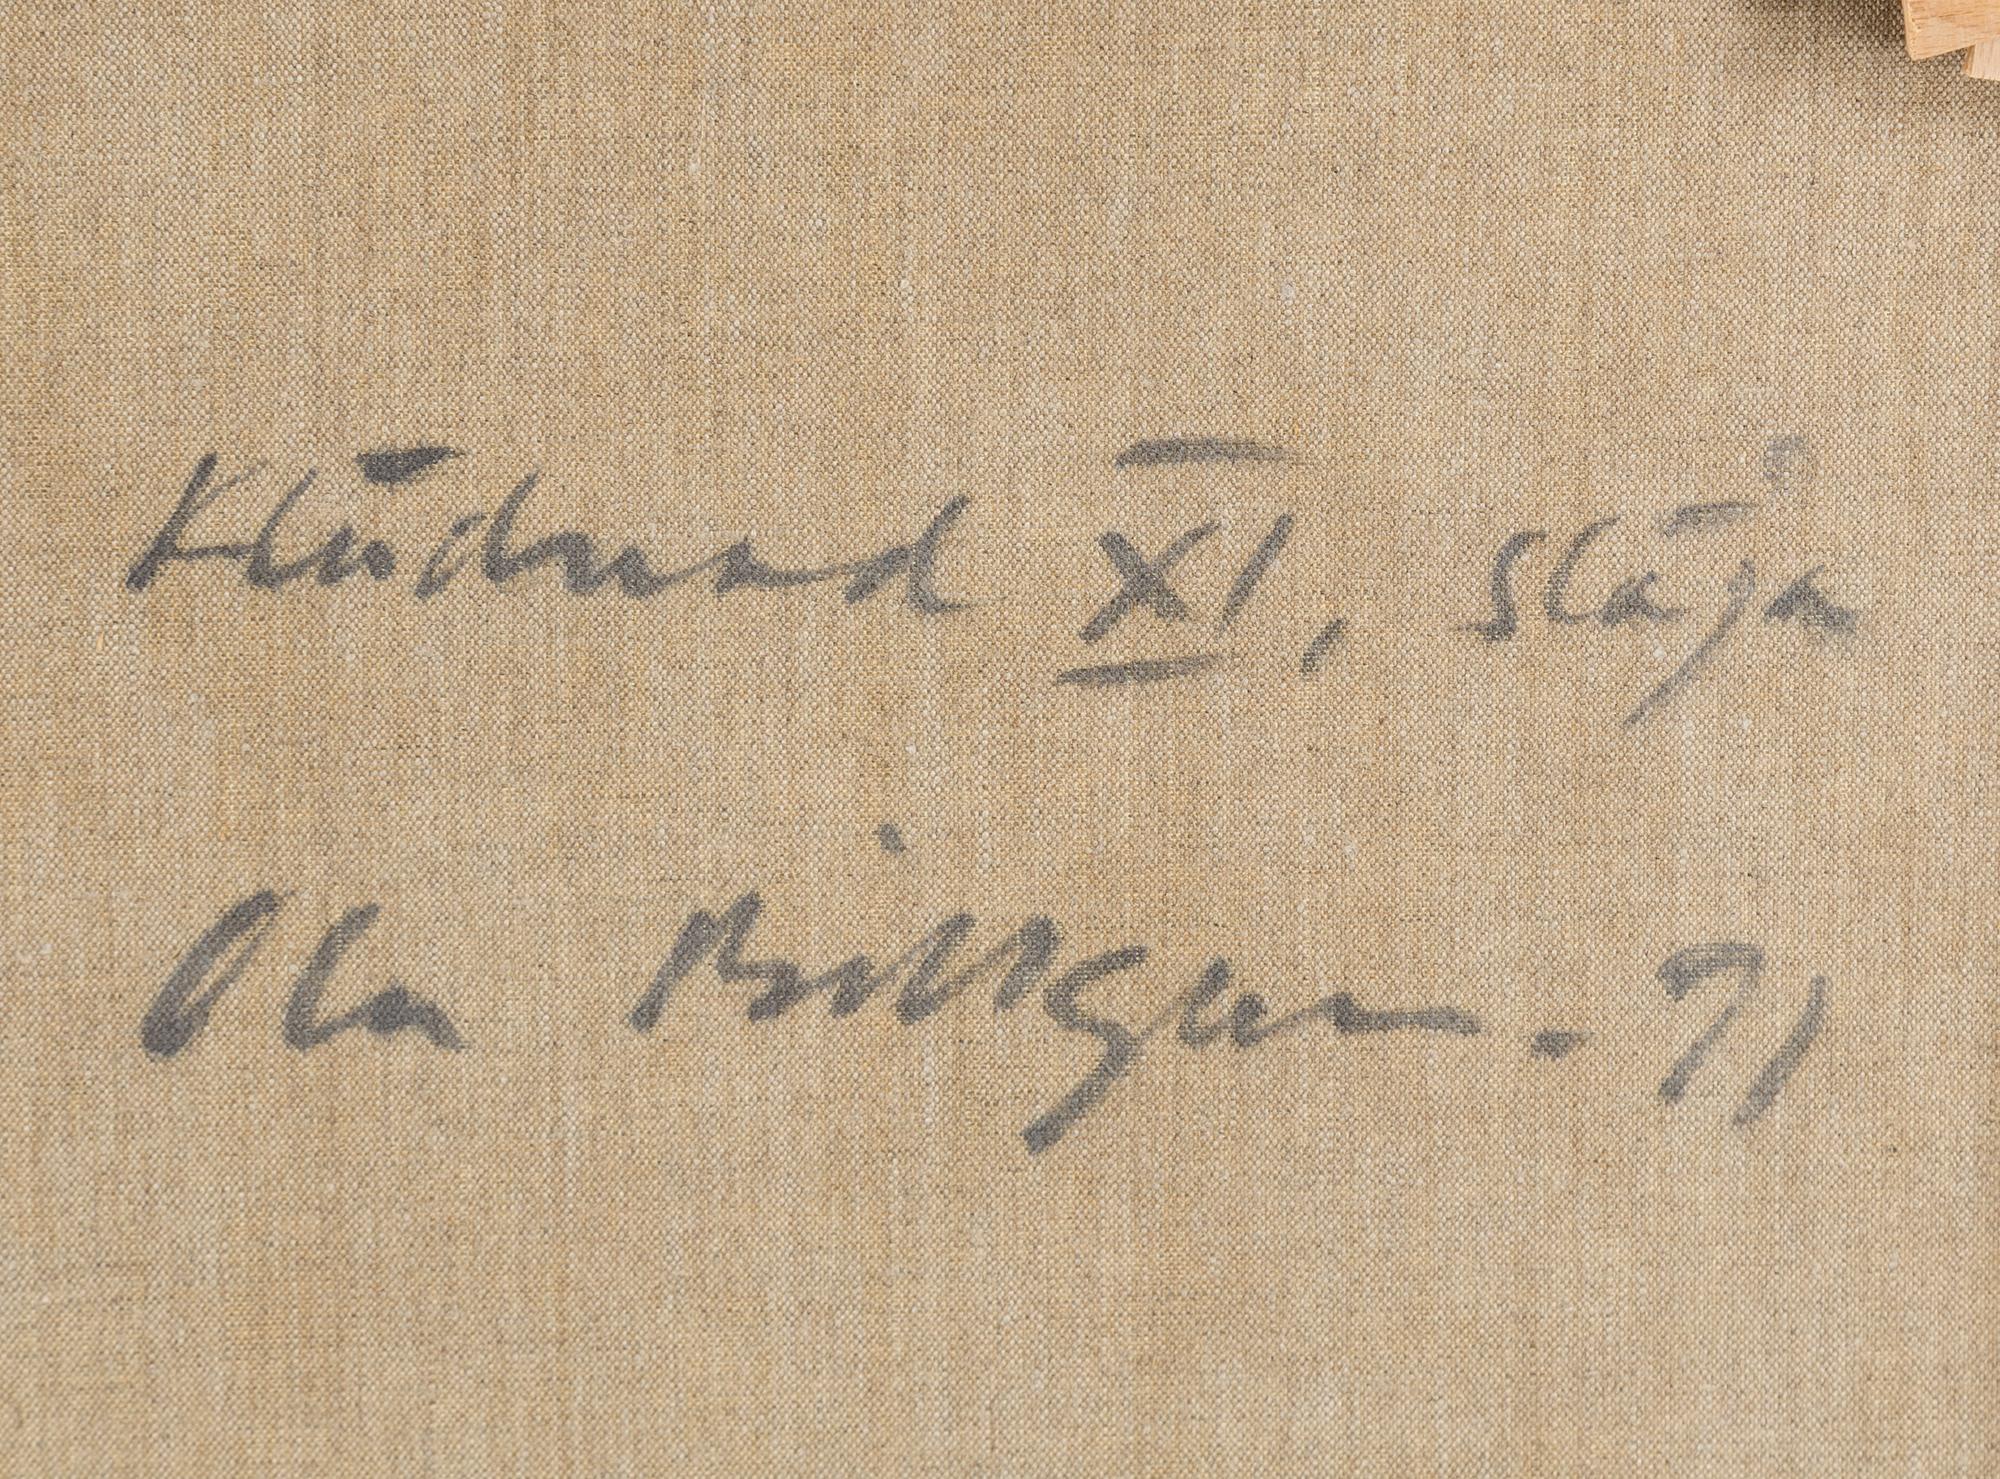 Klädnad XI, Slöja
Ola Billgren. 71